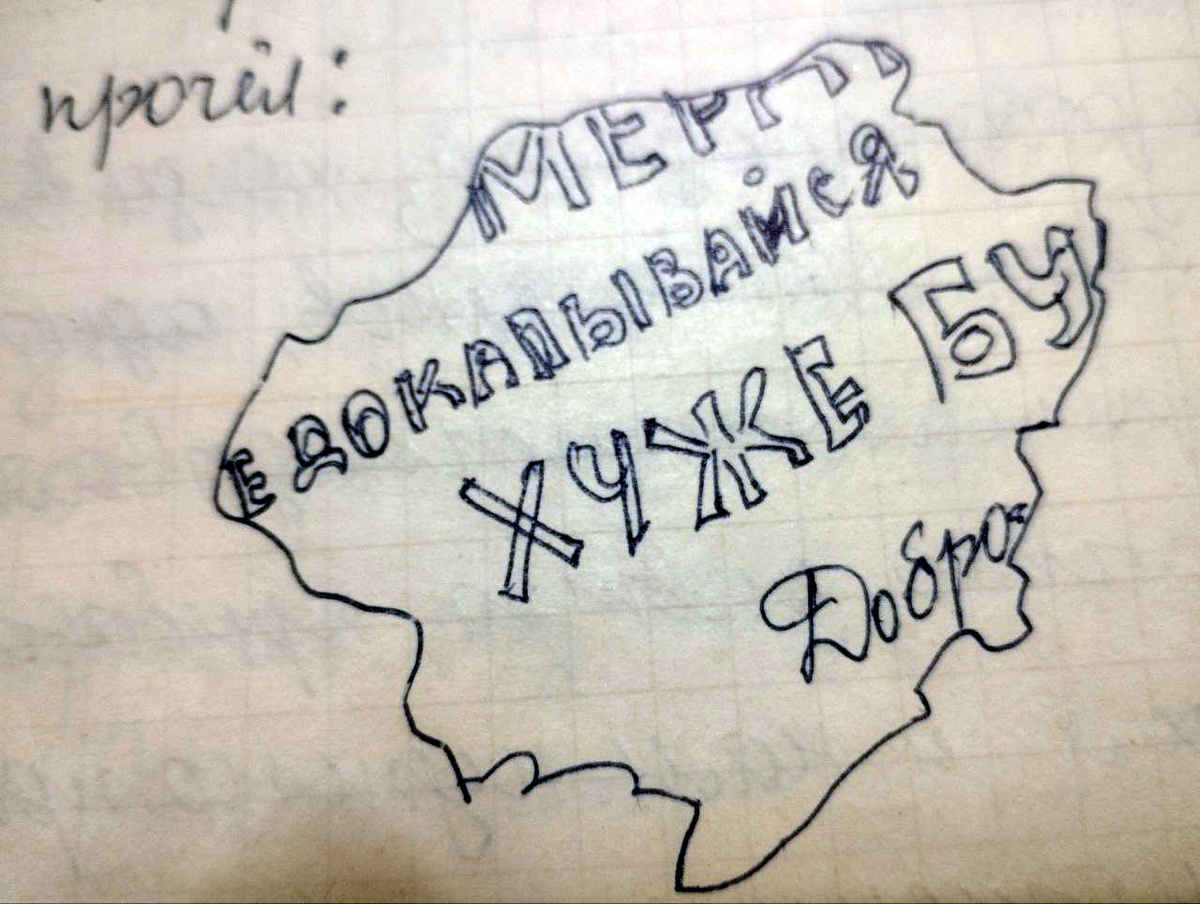 прочёл:
МЕРТ
ЕДОКАПЫВАЙСЯ
ХУЖЕ БУ
Добро